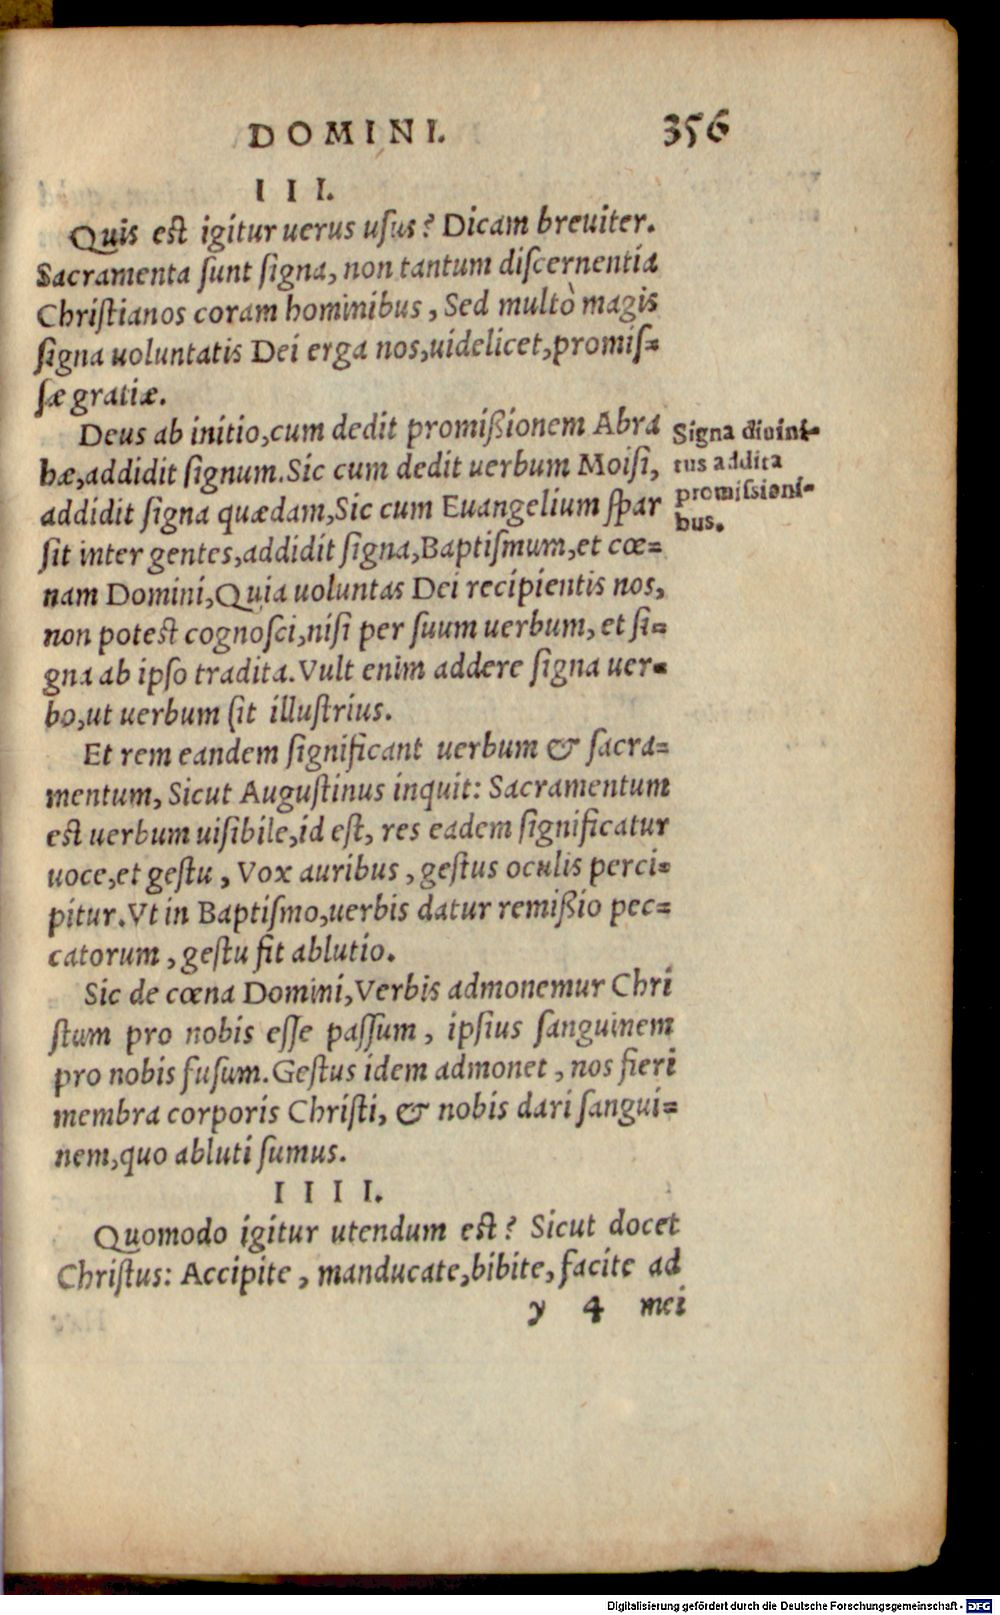 DOMINI. 356
III.
Quis est igitur uerus uſus? Dicam breuiter.
Sacramenta ſunt ſigna, non tantum diſcernentia
Chriſtianos coram hominibus, Sed multò magis
ſigna uoluntatis Dei erga nos, uidelicet, promiſ=
ſæ gratiæ.
Deus ab initio, cum dedit promißionem Abra
hæ, addidit ſignum. Sic cum dedit uerbum Moiſi,
addidit ſigna quædam, Sic cum Euangelium ſpar
ſit inter gentes, addidit ſigna, Baptiſmum, et cœ=
nam Domini, Quia uoluntas Dei recipientis nos,
non potest cognoſci, niſi per ſuum uerbum, et ſi=
gna ab ipſo tradita. Vult enim addere ſigna uer=
bo, ut uerbum ſit illuſtrius.
Signa diuini=
tus addita
promiſsioni=
bus.
Et rem eandem ſignificant uerbum & ſacra=
mentum, Sicut Auguſtinus inquit: Sacramentum
est uerbum uiſibile, id eſt, res eadem ſignificatur
uoce, et geſtu, Vox auribus, geſtus oculis perci=
pitur. Vt in Baptiſmo, uerbis datur remißio pec=
catorum, geſtu fit ablutio.
Sic de cœna Domini, Verbis admonemur Chri
ſtum pro nobis eſſe paſſum, ipſius ſanguinem
pro nobis fuſum. Geſtus idem admonet, nos fieri
membra corporis Chriſti, & nobis dari ſangui=
nem, quo abluti ſumus.
IIII.
Quomodo igitur utendum est? Sicut docet
Chriſtus: Accipite, manducate, bibite, facite ad
y 4 mei
Digitalisierung gefördert durch die Deutsche Forschungsgemeinschaft - DFG